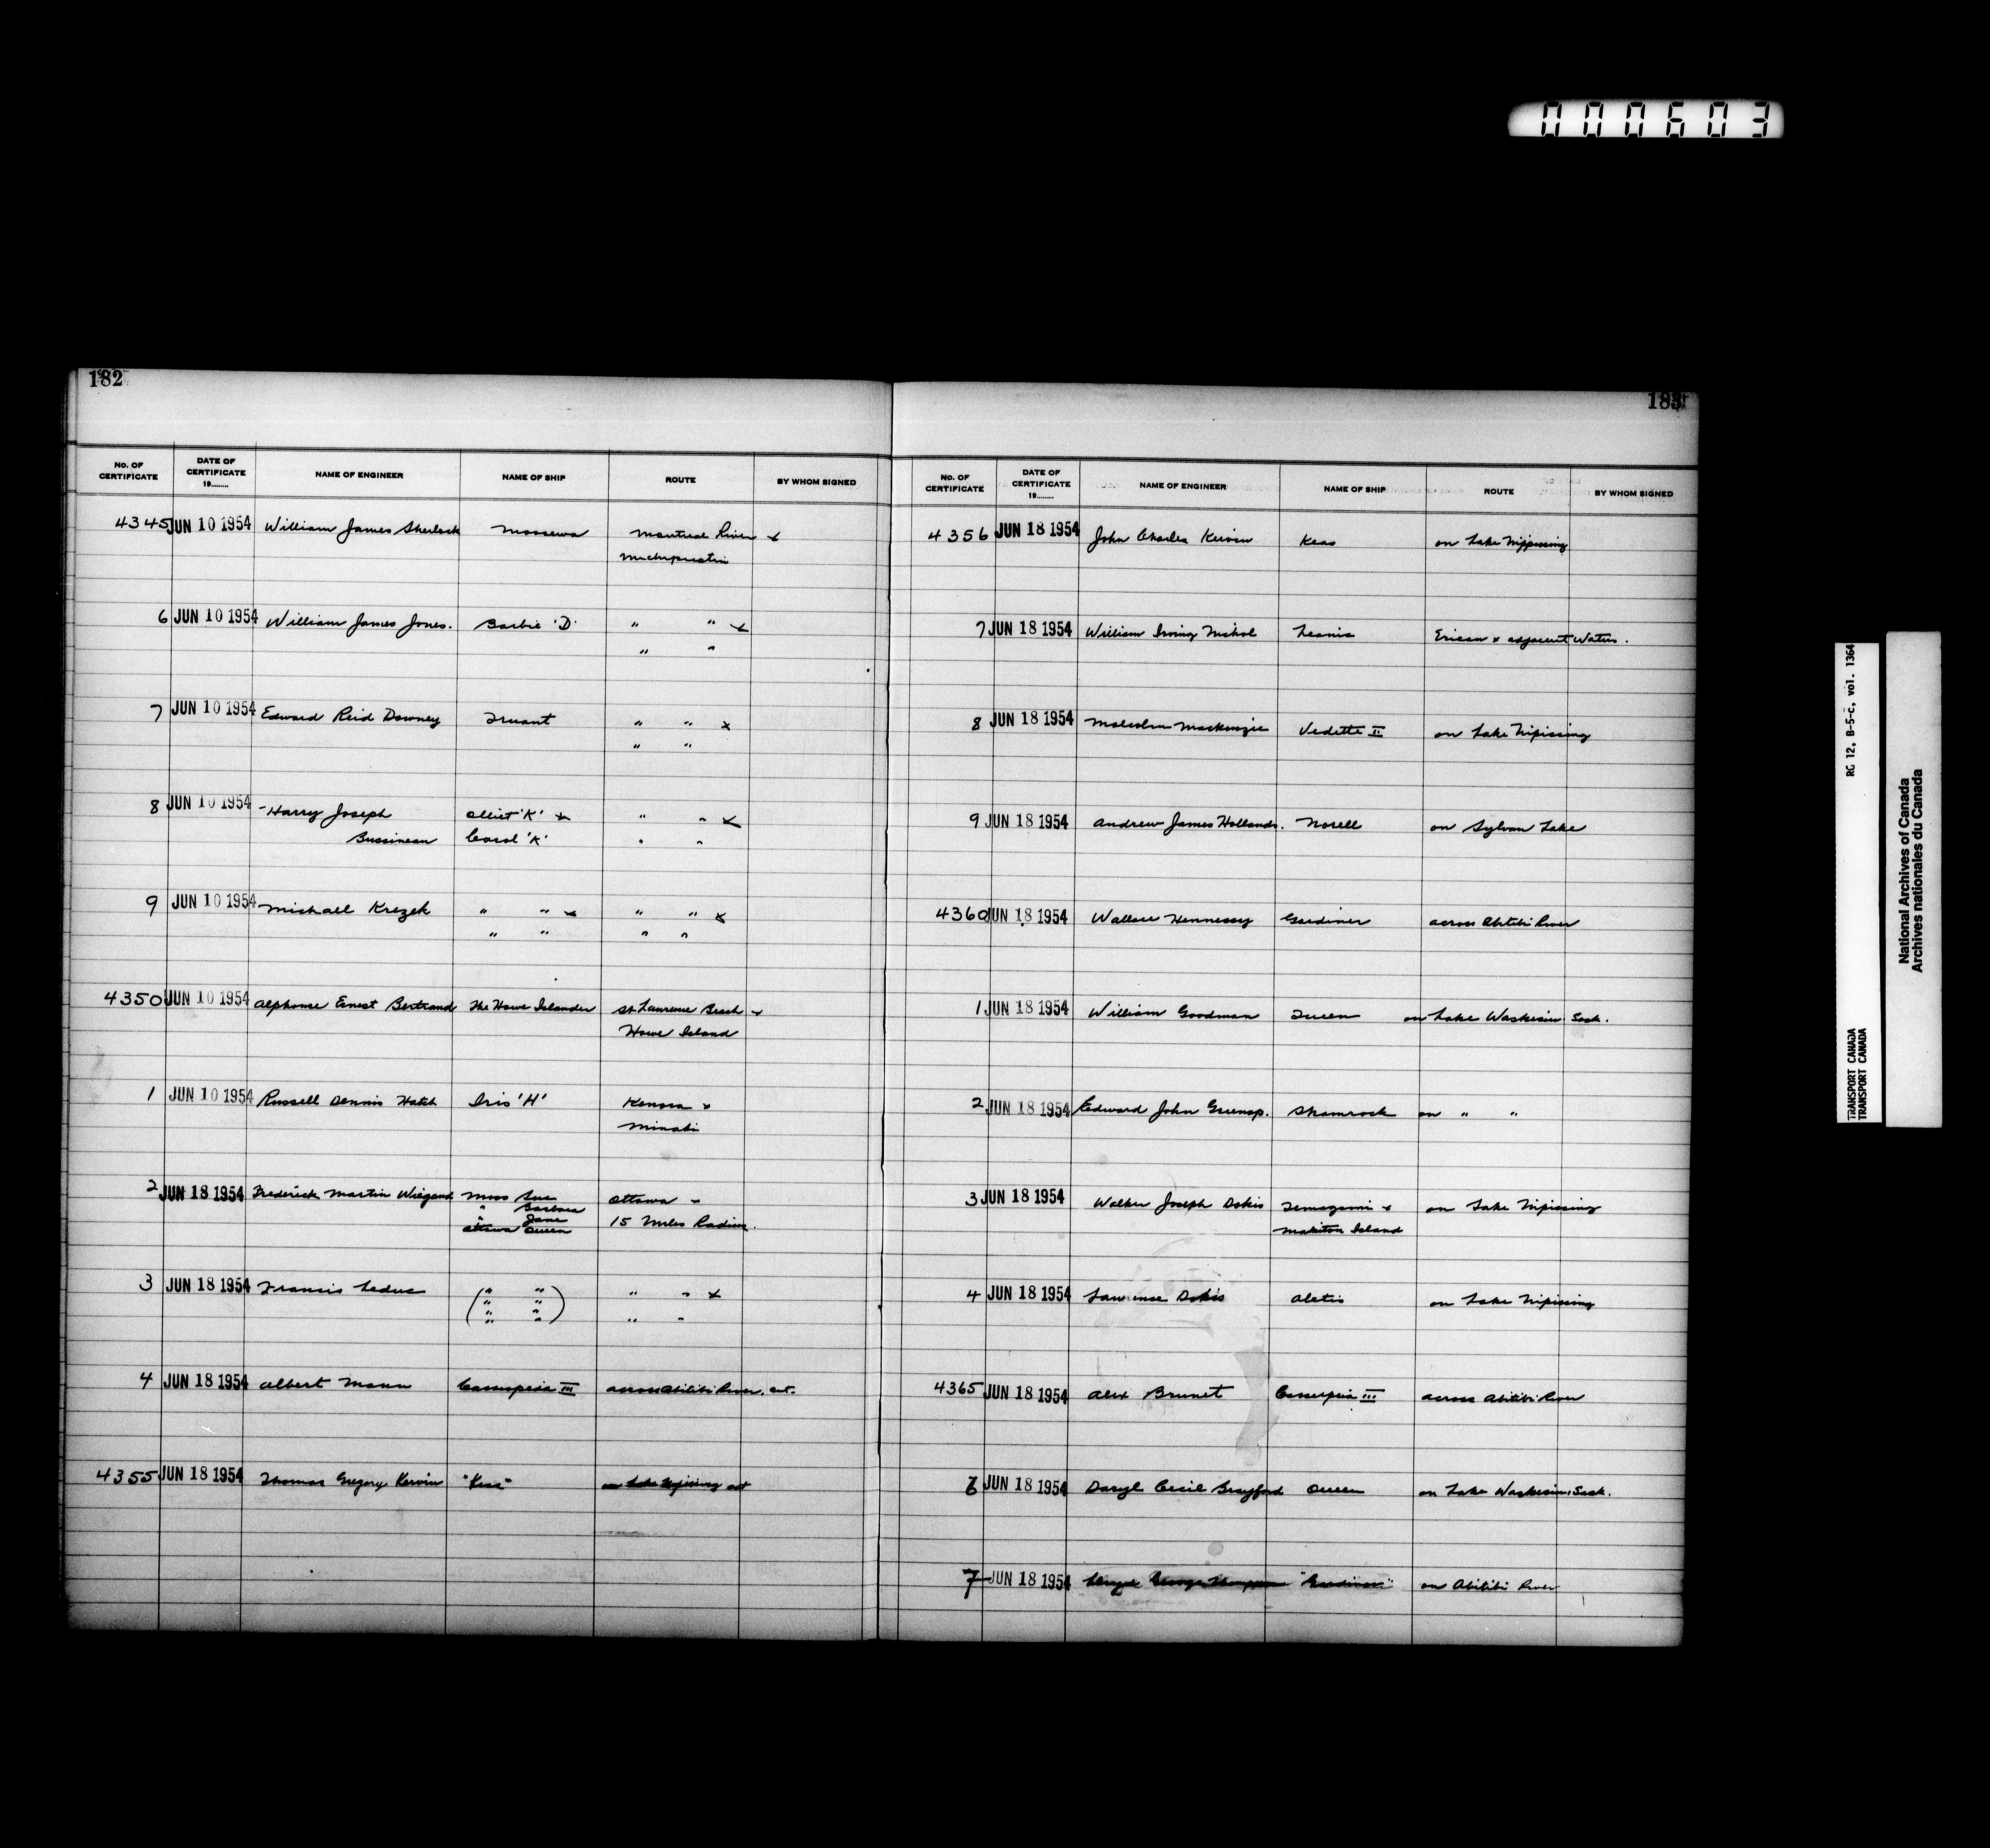 000603
182
No. OF CERTIFICATE DATE OF CERTIFICATE 19........ NAME OF ENGINEER NAME OF SHIP ROUTE BY WHOM SIGNED
4345 JUN 10 1954 William James Sherlock Moosewa Montreal River &
Michipicotin
6 JUN 10 1954 William James Jones. Barbie 'D' " " &
" "
7 JUN 10 1954 Edward Reid Downey Truant " " &
" "
8 JUN 10 1954 Harry Joseph 'K' & " " &
Bussineau Carol 'K' " "
9 JUN 10 1954 Michael Krezek " " & " " &
" " " "
4350 JUN 10 1954 Alphonse Ernest Bertrand The Howe Islander St. Laurence Beach &
Howe Island
1 JUN 10 1954 Russell Dennis Hatch Iris 'H' Kenora &
Minaki
2 JUN 18 1954 Frederick Martin Wiegand Miss Sue Ottawa -
" Barbara
" Jane 15 Miles Radius.
Ottawa Queen
3 JUN 18 1954 Francis Leduc ( " " ) " " &
" "
" "
" " " "
4 JUN 18 1954 Albert Mann Casuapedia III across Abitibi River.
4355 JUN 18 1954 Thomas Gregory Kervin on Lake Nipissing
183
No. OF CERTIFICATE DATE OF CERTIFICATE 19........ NAME OF ENGINEER NAME OF SHIP ROUTE BY WHOM SIGNED
4356 JUN 18 1954 John Charles Kervin on Lake Nippissing
7 JUN 18 1954 William Irving Nichol & adjacent Waters.
8 JUN 18 1954 Malcolm MacKenzie Vedette II on Lake Nipissing
9 JUN 18 1954 Andrew James Hollands. Norell on Sylvan Lake
4360 JUN 18 1954 Wallace Hennessy Gardiner across Abitibi River
1 JUN 18 1954 William Goodman Queen on Lake Waskesiu. Sask.
2 JUN 18 1954 Edward John Shamrock on " "
3 JUN 18 1954 Walker Joseph Dokis Temagami & on Lake Nipissing
Island
4 JUN 18 1954 Lawrence Dokis on Lake Nipissing
4365 JUN 18 1954 Alex Brunet III across Abitibi River
6 JUN 18 1954 Daryl Cecil Brayford Queen on Lake Waskesiu, Sask.
7 JUN 18 1954 George Thompson on Abitibi River
RG 12, B-5-c, vol. 1364
TRANSPORT CANADA
TRANSPORT CANADA
National Archives of Canada
Archives nationales du Canada